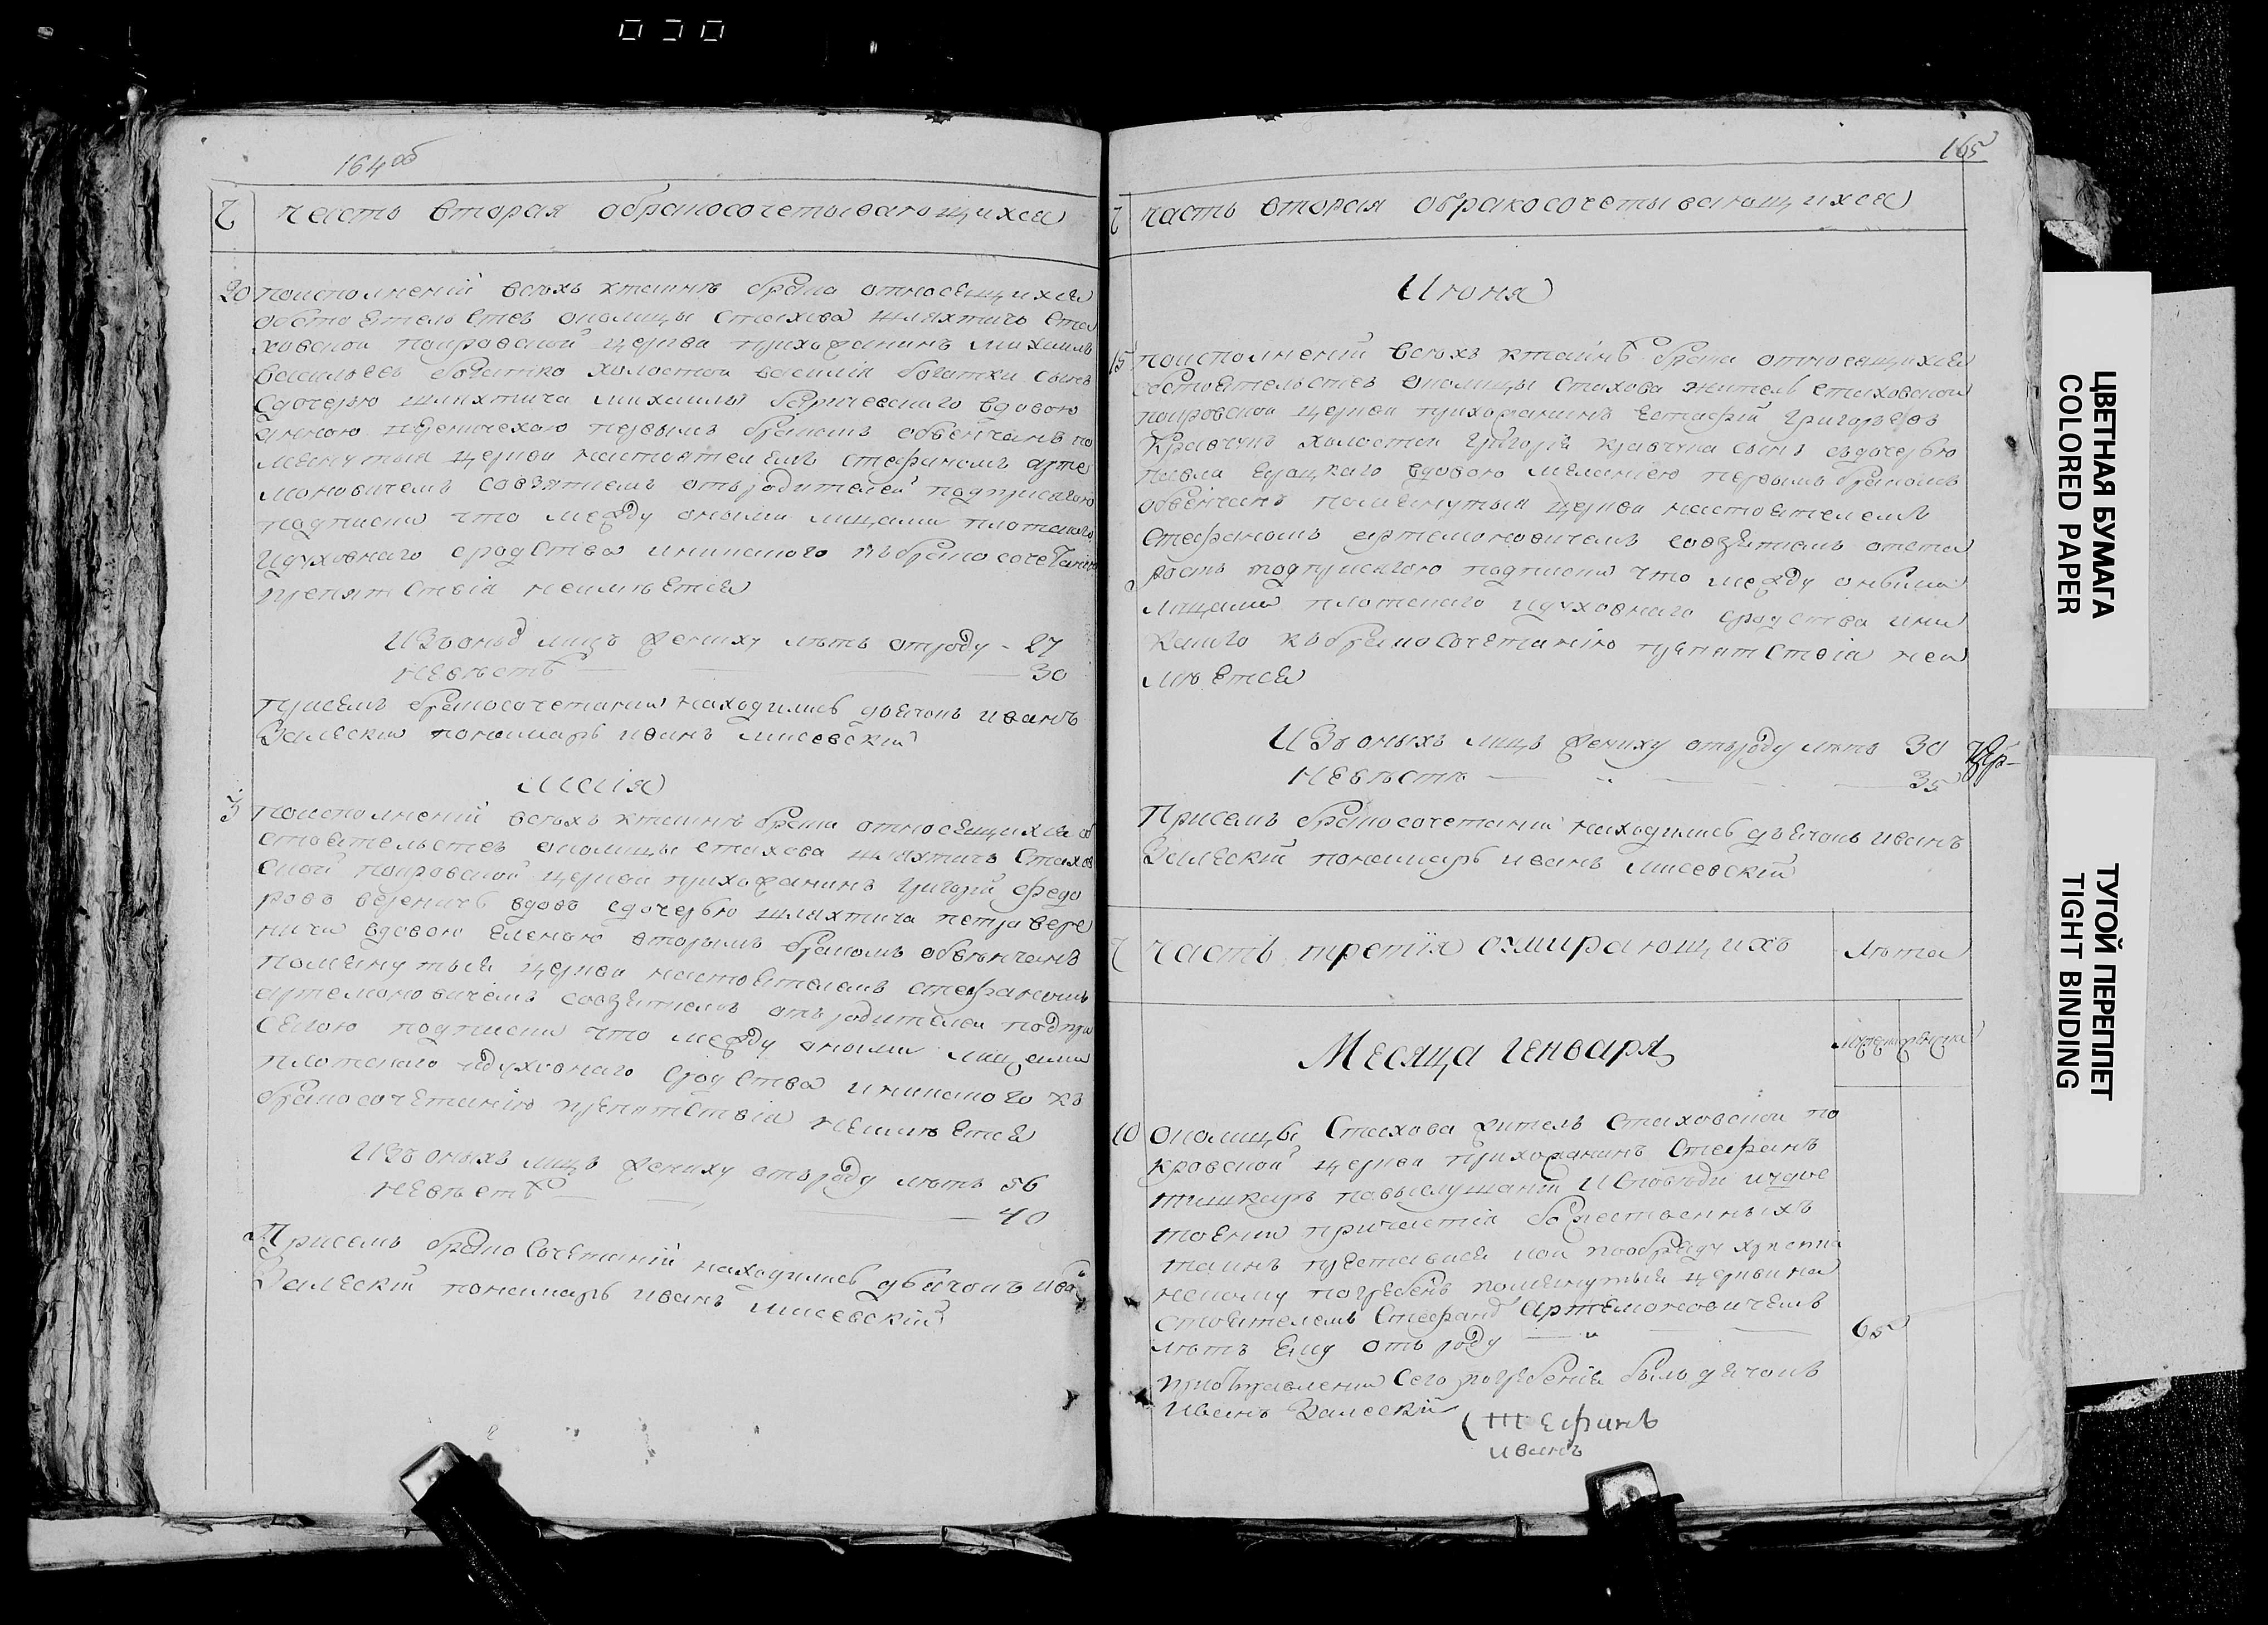 164об
Ч Часть вторая обракосочетывающихся
20 Поисполнений всѣхъ ктаинѣ брака относящихся
обстоятельствъ околицы Стахова шляхтичъ Ста
ховской покровской церкви прихожанинъ Михаилъ
Васильевъ Богатко холостой Василія Богатки сынъ
Сдочерью шляхтича Михаилы вдовою
Анною первымъ бракомъ обвенчанъ по
мянутыя церкви настоятелемъ Стефаномъ Арте
моновичемъ совзятіемъ отъ родителей подприсягою
подписки что между оными лицами плотскаго
и духовнаго сродства иникакого къбракосочетанію
препятствія неимѣется
Изъ оныхъ лицъ жениху лѣтъ отроду - 27
Невѣстѣ 30
Присемъ бракосочетании находились дьячокъ Иванъ
Залескій пономарь Иванъ Мисевскій
Маія
3 Поисполнений всѣхъ ктаинѣ брака относящихся об
стоятельствъ околицы Стахова шляхтичъ Стахов
ской покровской церкви прихожанинъ Григорій Федо
ровъ Вереничъ вдовъ сдочерью шляхтича Петра Вере
нича вдовою Еленою вторымъ бракомъ обвѣнчанъ
помянутыя церкви настоятелемъ Стефаномъ
Артемоновичемъ совзятіемъ отъ родителей подпри
сягою подписки что между оными лицами
плотскаго идуховнаго сродства иникакого къ
бракосочетанію препятствія неимѣется
Изъ оныхъ лицъ жениху отъ роду лѣтъ 56
Невѣстѣ 40
Присемъ бракосочетаній находились дьячокъ Ива
Залескій пономарь Иванъ Мисевскій
165
Ч Часть вторая обракосочетывающихся
Июня
15 Поисполнений всѣхъ ктаинѣ брака относящихся
обстоятельствъ околицы Стахова житель Стаховской
покровской церкви прихожанинъ Естафій Григорьевъ
Кравчукъ холостой Григорія Кравчука сынъ сдочерью
Павла вдовою Меланіею первымъ бракомъ
обвенчанъ помянутыя церкви настоятелемъ
Стефаномъ Артемоновичемъ совзятіемъ отста
ростъ подприсягою подписки что между оными
лицами плотскаго идуховнаго сродства ини
какого къбракосочетанію препятствія неи
мѣется
Изъ оныхъ лицъ жениху отъроду лѣтъ 30
Невѣстѣ 35
Присемъ бракосочетаний находились дьячокъ Иванъ
Залескій пономарь Иванъ Мисевскій
Ч Часть третія оумирающихъ Лѣта
Месяца генваря
10 Околицы Стахова житель Стаховской по
кровской церкви прихожанинъ Стефанъ
повыслушаній исповѣди иудос
тоении причастія божественныхъ
таинъ преставися кой пообряду христиа
нскому погребенъ помянутыя церкви на
стоятелемъ Стефаномъ Артемоновичемъ
лѣтъ ему отъ роду 65
Приотправлении сего погребенія былъ дьячокъ
Иванъ Залескій
Иванъ
ЦВЕТНАЯ БУМАГА
COLORED PAPER
ТУГОЙ ПЕРЕПЛЕТ
TIGHT BINDING